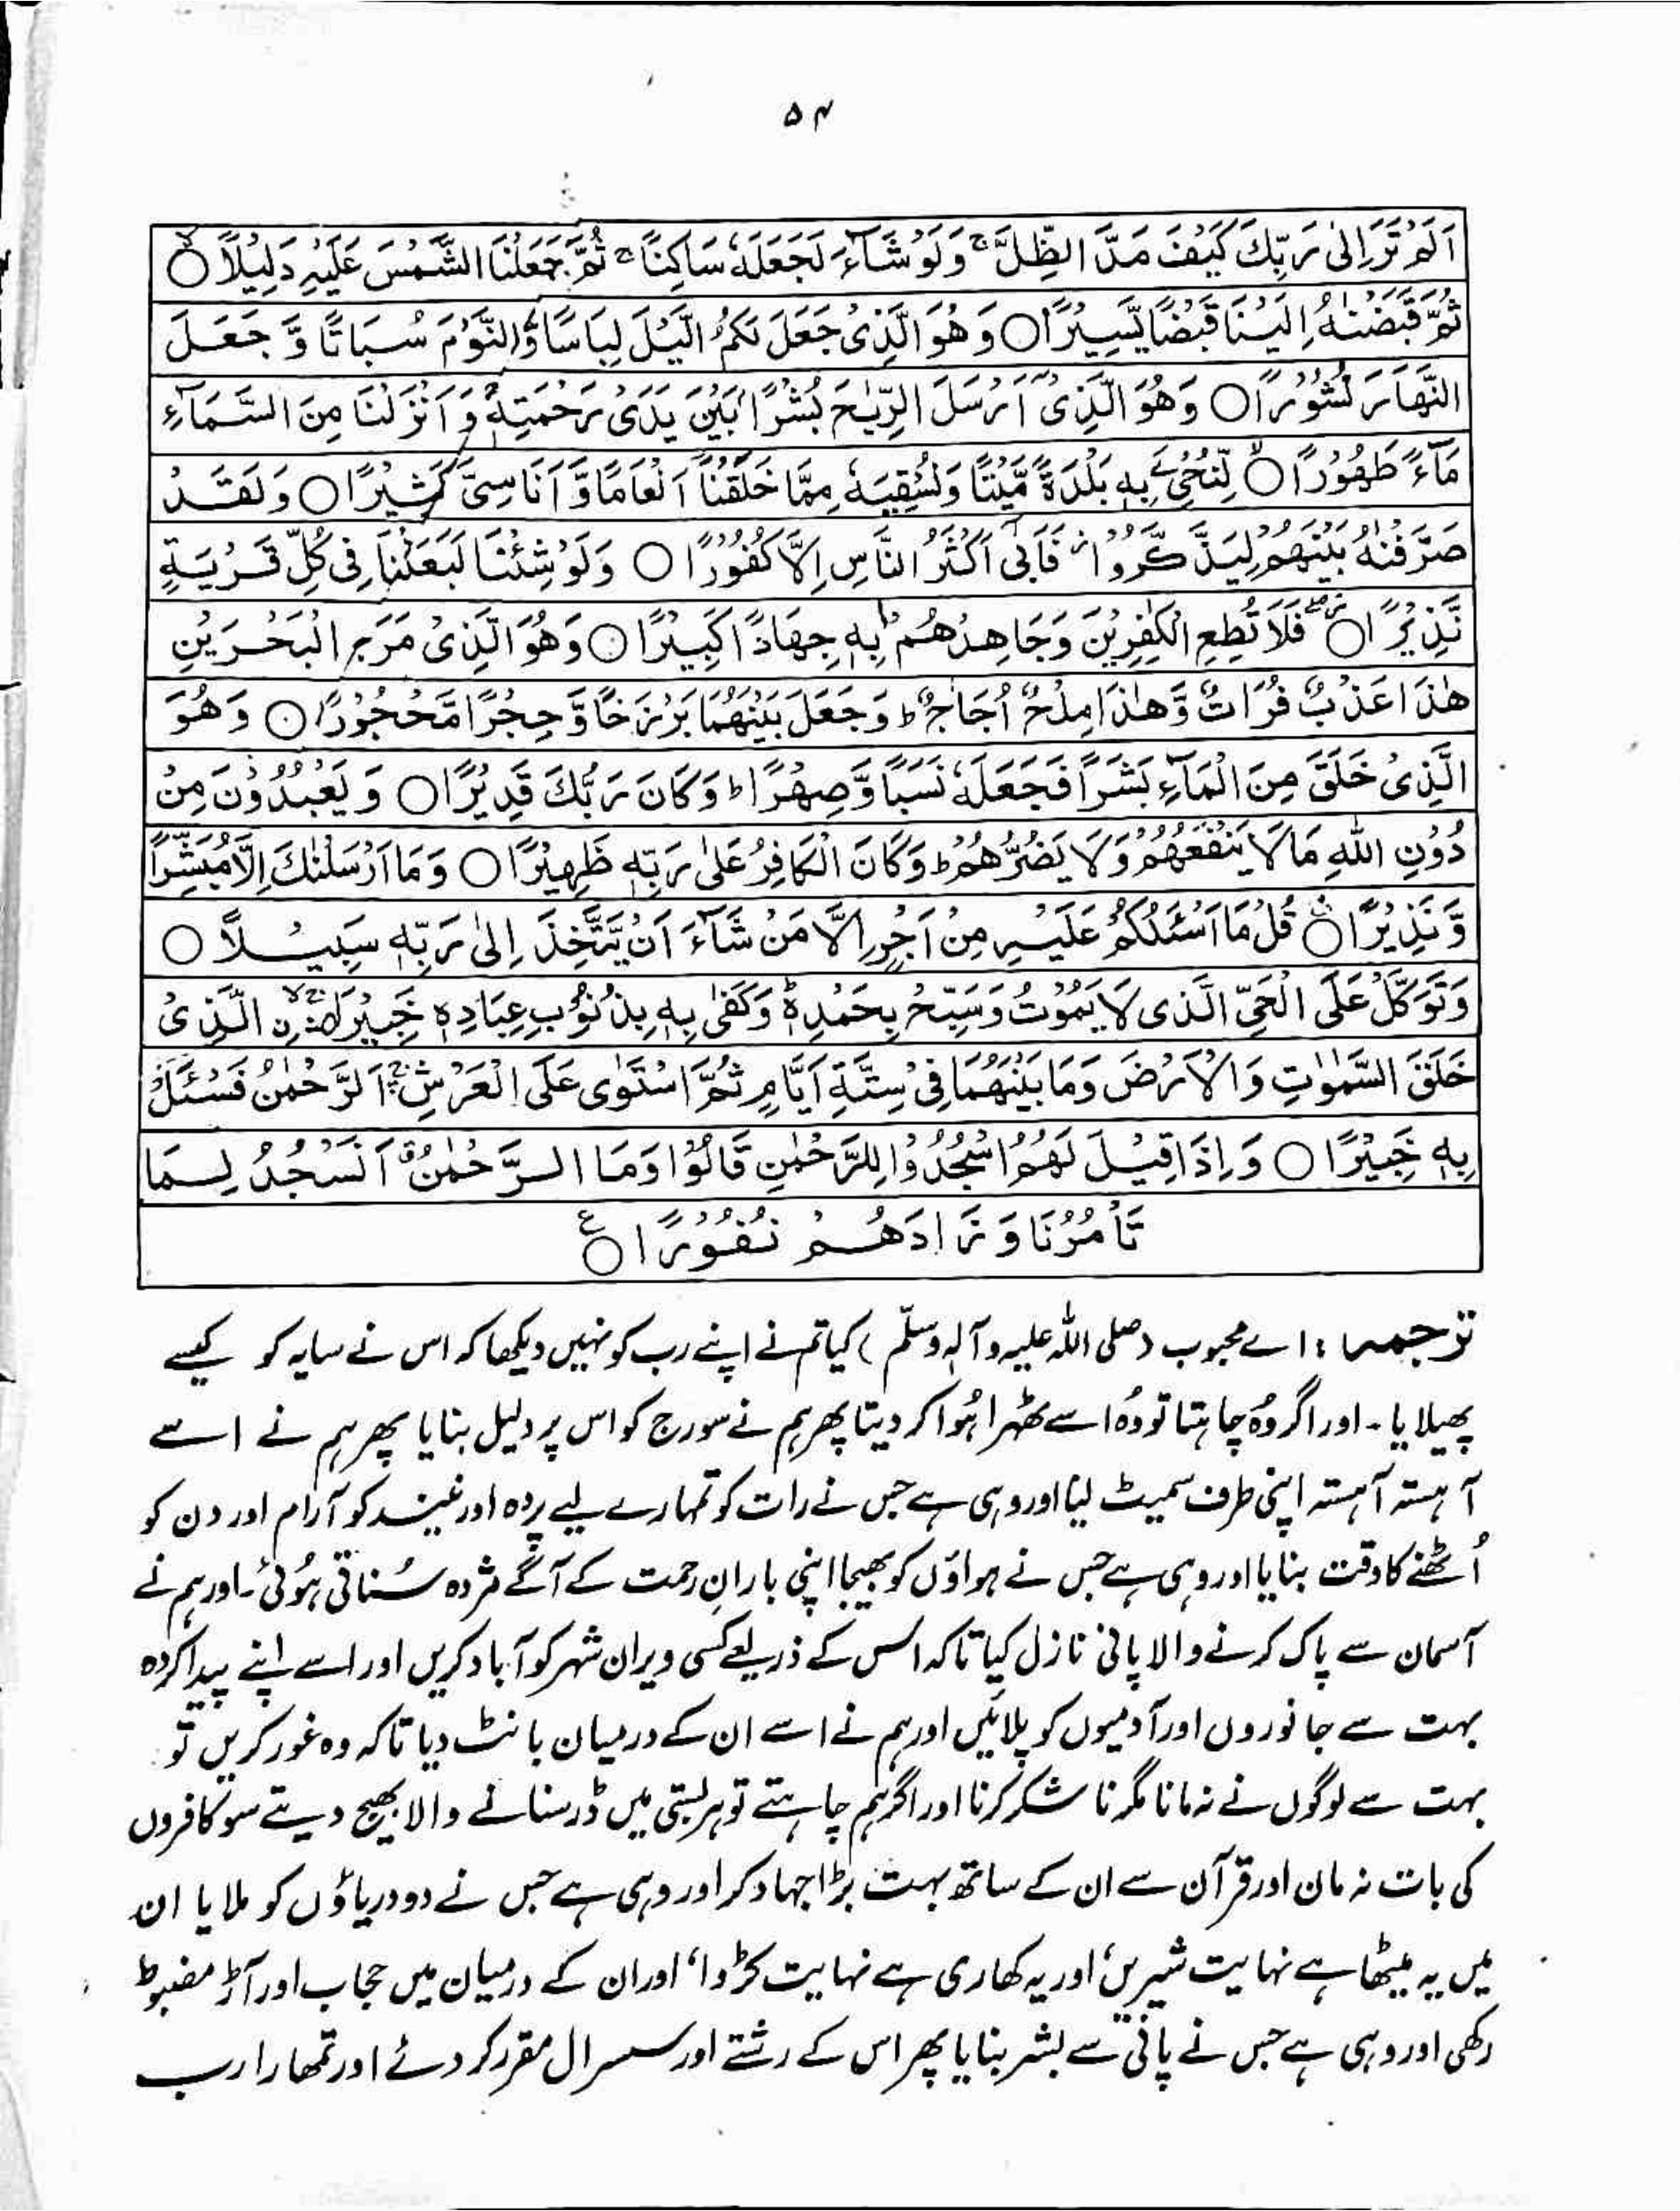 ۵۴
اَلَمْ تَرَ اِلٰى رَبِّكَ كَيْفَ مَدَّ الظِّلَّ ۚ وَلَوْ شَآءَ لَجَعَلَهٗ سَاكِنًا ۚ ثُمَّ جَعَلْنَا الشَّمْسَ عَلَيْهِ دَلِيْلًا ۙ○
ثُمَّ قَبَضْنٰهُ اِلَيْنَا قَبْضًا يَّسِيْرًا ○ وَهُوَ الَّذِىْ جَعَلَ لَكُمُ الَّيْلَ لِبَاسًا وَّالنَّوْمَ سُبَاتًا وَّ جَعَلَ
النَّهَارَ نُشُوْرًا ○ وَهُوَ الَّذِىْٓ اَرْسَلَ الرِّيٰحَ بُشْرًۢا بَيْنَ يَدَىْ رَحْمَتِهٖ ۚ وَ اَنْزَلْنَا مِنَ السَّمَآءِ
مَآءً طَهُوْرًا ۙ○ لِّنُحْىِۦَ بِهٖ بَلْدَةً مَّيْتًا وَّنُسْقِيَهٗ مِمَّا خَلَقْنَآ اَنْعَامًا وَّ اَنَاسِىَّ كَثِيْرًا ○ وَلَقَدْ
صَرَّفْنٰهُ بَيْنَهُمْ لِيَذَّكَّرُوْا ز فَاَبٰىٓ اَكْثَرُ النَّاسِ اِلَّا كُفُوْرًا ○ وَلَوْ شِئْنَا لَبَعَثْنَا فِى كُلِّ قَرْيَةٍ
نَّذِيْرًا ○ فَلَا تُطِعِ الْكٰفِرِيْنَ وَجَاهِدْهُمْ بِهٖ جِهَادًا كَبِيْرًا ○ وَهُوَ الَّذِىْ مَرَجَ الْبَحْرَيْنِ
هٰذَا عَذْبٌ فُرَاتٌ وَّهٰذَا مِلْحٌ اُجَاجٌ ط وَجَعَلَ بَيْنَهُمَا بَرْزَخًا وَّ حِجْرًا مَّحْجُوْرًا ○ وَهُوَ
الَّذِىْ خَلَقَ مِنَ الْمَآءِ بَشَرًا فَجَعَلَهٗ نَسَبًا وَّصِهْرًا ط وَكَانَ رَبُّكَ قَدِيْرًا ○ وَ يَعْبُدُوْنَ مِنْ
دُوْنِ اللّٰهِ مَا لَا يَنْفَعُهُمْ وَلَا يَضُرُّهُمْ ط وَكَانَ الْكَافِرُ عَلٰى رَبِّهٖ ظَهِيْرًا ○ وَمَآ اَرْسَلْنٰكَ اِلَّا مُبَشِّرًا
وَّ نَذِيْرًا ○ قُلْ مَآ اَسْئَلُكُمْ عَلَيْهِ مِنْ اَجْرٍ اِلَّا مَنْ شَآءَ اَنْ يَّتَّخِذَ اِلٰى رَبِّهٖ سَبِيْلًا ○
وَتَوَكَّلْ عَلَى الْحَىِّ الَّذِى لَا يَمُوْتُ وَسَبِّحْ بِحَمْدِهٖ ط وَكَفٰى بِهٖ بِذُنُوْبِ عِبَادِهٖ خَبِيْرَا نِ الَّذِىْ
خَلَقَ السَّمٰوٰتِ وَالْاَرْضَ وَمَا بَيْنَهُمَا فِىْ سِتَّةِ اَيَّامٍ ثُمَّ اسْتَوٰى عَلَى الْعَرْشِ ۛ اَلرَّحْمٰنُ فَسْئَلْ
بِهٖ خَبِيْرًا ○ وَ اِذَا قِيْلَ لَهُمُ اسْجُدُوْا لِلرَّحْمٰنِ قَالُوْا وَمَا الرَّحْمٰنُ ق اَنَسْجُدُ لِمَا
تَاْمُرُنَا وَ زَادَهُمْ نُفُوْرًا ○ ع
ترجمہ : اے محبوب (صلی اللہ علیہ وآلہٖ وسلّم) کیا تم نے اپنے رب کو نہیں دیکھا کہ اس نے سایہ کو کیسے
پھیلایا۔ اور اگر وُہ چاہتا تو وُہ اسے ٹھہرا ہُوا کر دیتا پھر ہم نے سورج کو اس پر دلیل بنایا پھر ہم نے اسے
آہستہ آہستہ اپنی طرف سمیٹ لیا اور وہی ہے جس نے رات کو تمہارے لیے پردہ اور نیند کو آرام اور دن کو
اُٹھنے کا وقت بنایا اور وہی ہے جس نے ہواؤں کو بھیجا اپنی بارانِ رحمت کے آگے مژدہ سُناتی ہُوئی۔ اور ہم نے
آسمان سے پاک کرنے والا پانی نازل کیا تاکہ اس کے ذریعے کسی ویران شہر کو آباد کریں اور اسے اپنے پیدا کردہ
بہت سے جانوروں اور آدمیوں کو پلائیں اور ہم نے اسے ان کے درمیان بانٹ دیا تاکہ وہ غور کریں تو
بہت سے لوگوں نے نہ مانا مگر نا شکر کرنا اور اگر ہم چاہتے تو ہر بستی میں ڈر سنانے والا بھیج دیتے سو کافروں
کی بات نہ مان اور قرآن سے ان کے ساتھ بہت بڑا جہاد کر اور وہی ہے جس نے دو دریاؤں کو ملایا ان
میں یہ میٹھا ہے نہایت شیریں، اور یہ کھاری ہے نہایت کڑوا، اور ان کے درمیان میں حجاب اور آڑ مضبوط
رکھی اور وہی ہے جس نے پانی سے بشر بنایا پھر اس کے رشتے اور سسرال مقرر کر دئے اور تمھارا رب